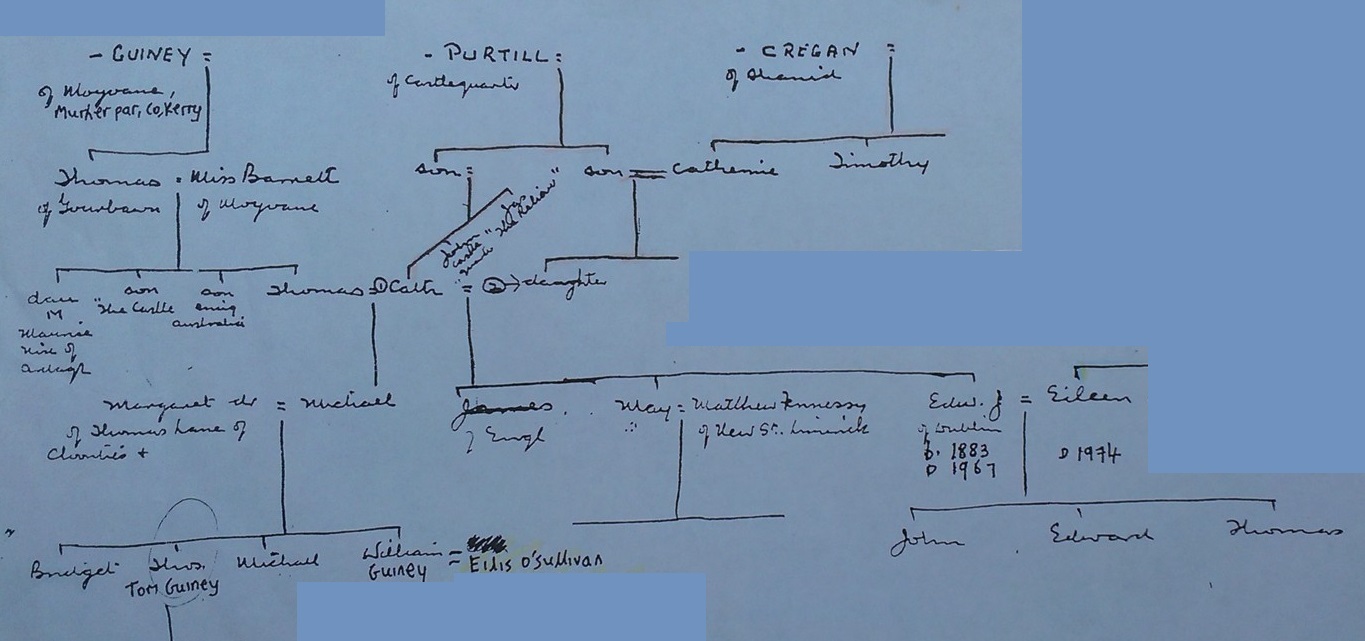 - GUINEY = - PURTILL = - CREGAN =
of Moyvane, of Castlequarter of Shanid
Murher par, Co, Kerry
Thomas = Miss Barrett son = son = Catherine Timothy
of of Moyvane
John Jas
"The
dau son son Thomas = ① Cath = ② → daughter
M "The Castle emig
Maurice australia
of
Margaret dr = Michael James. May = Matthew Fennessy Edw. J = Eileen
of Thomas Lane of of Engl of New St. Limerick of Dublin
+ b. 1883 D 1974
D 1967
Bridget Thos. Michael William = Eilis O'Sullivan John Edward Thomas
Tom Guiney Guiney